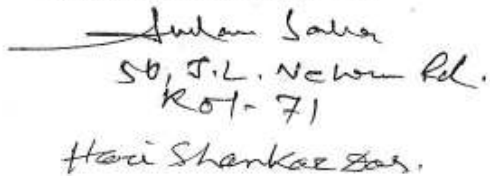 Saha
50, J.L. Nehru Rd.
Kol-71
Hari Shankar Das.